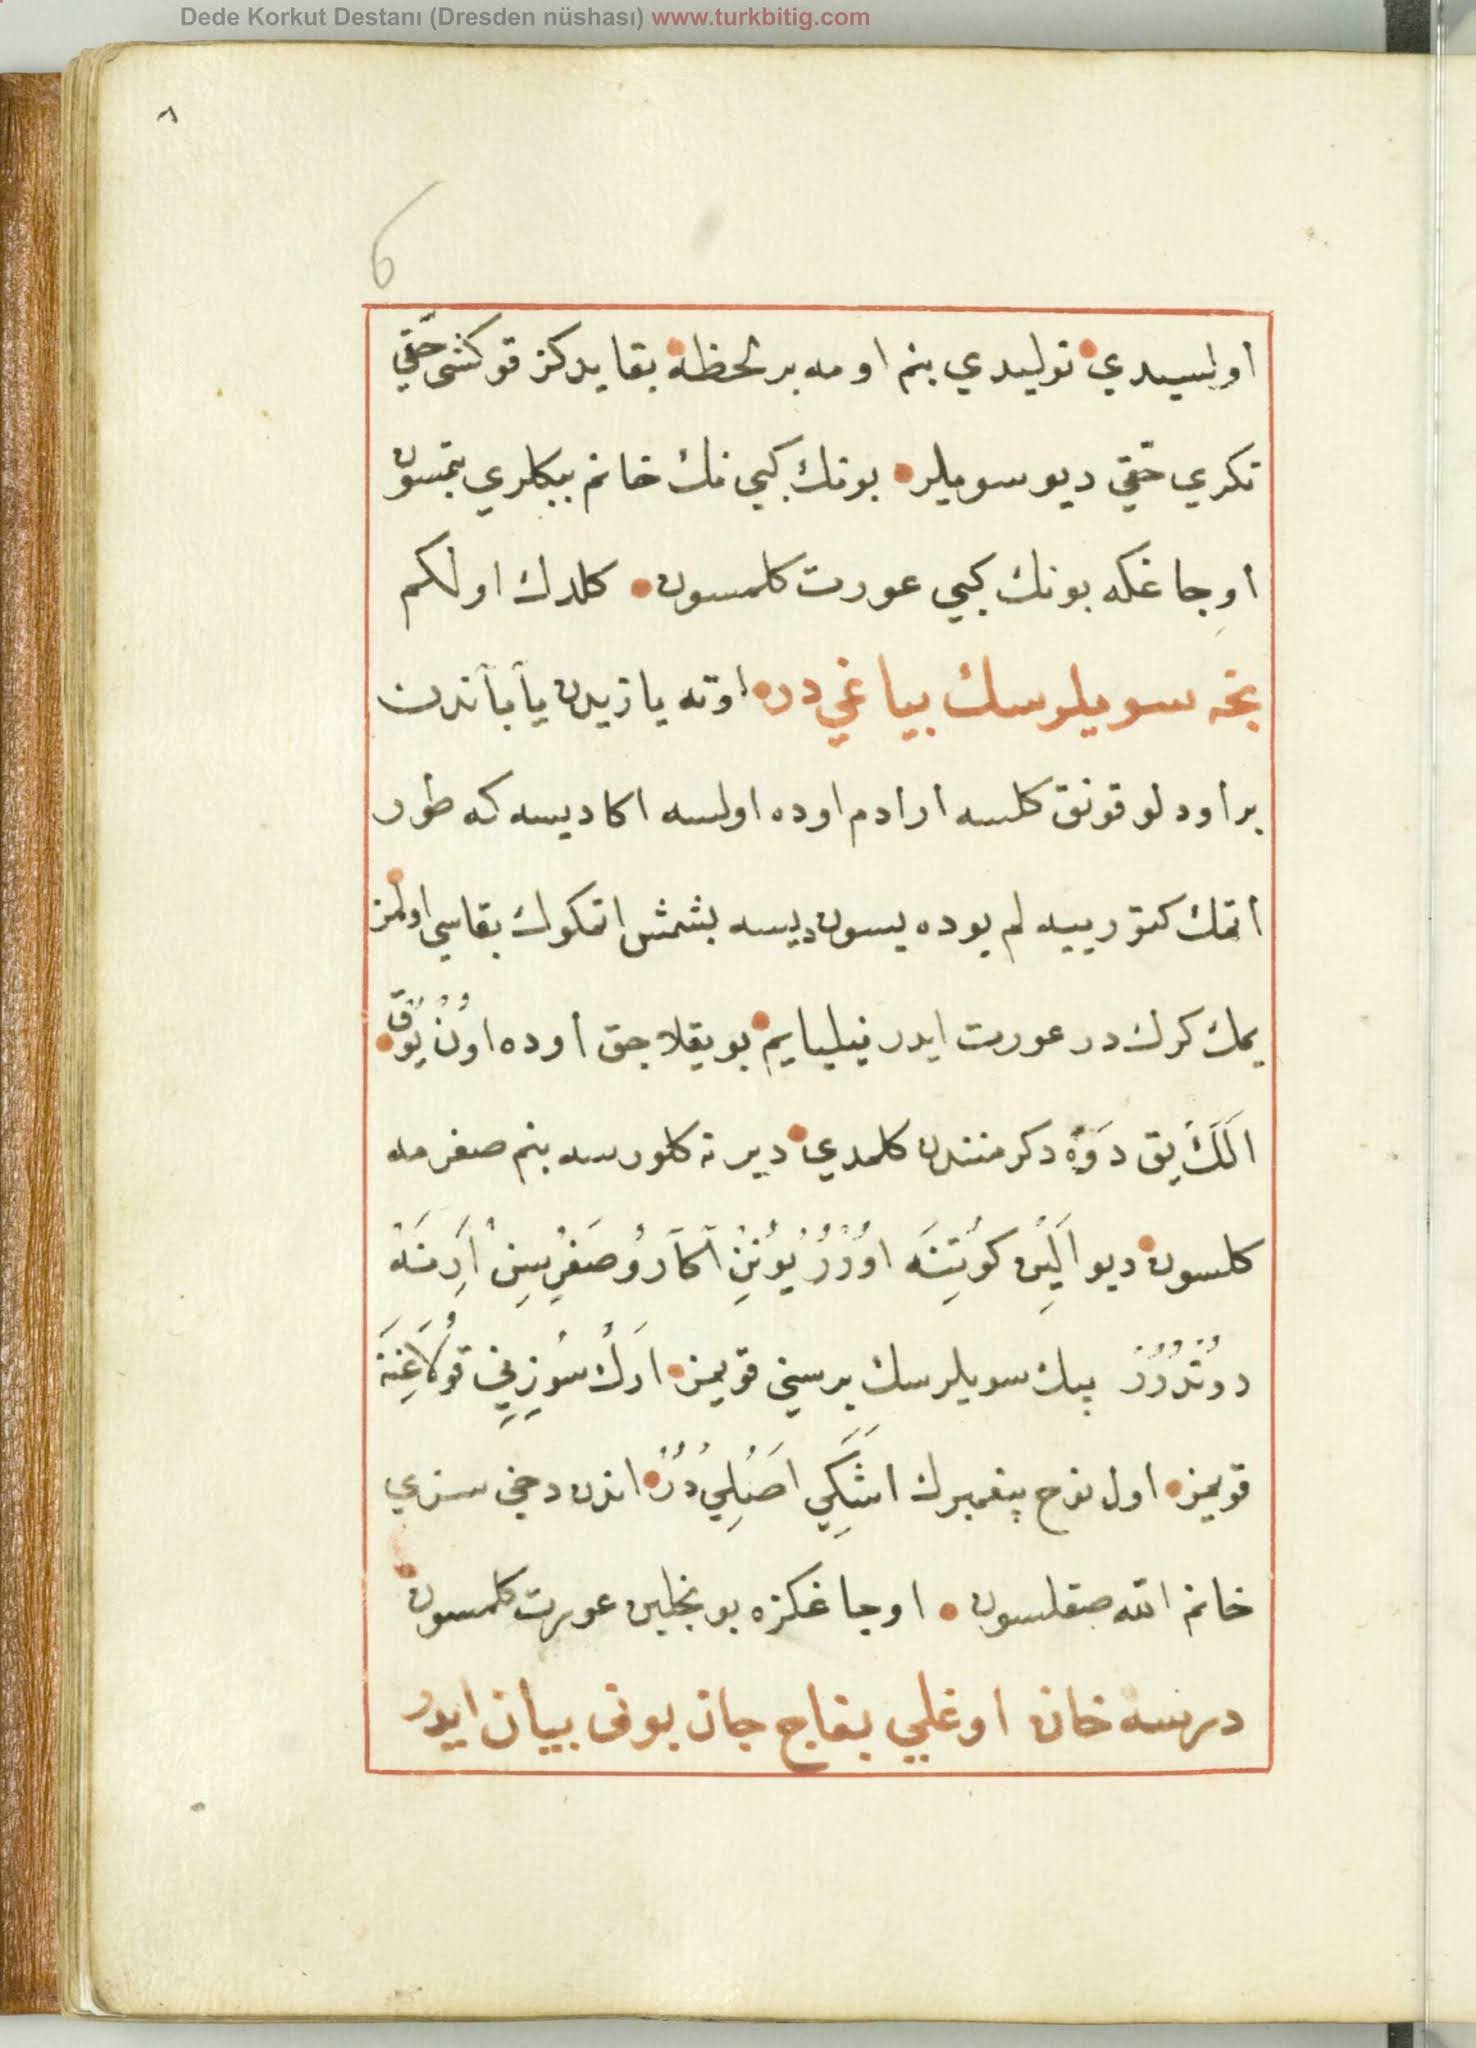 Dede Korkut Destanı (Dresden nüshası) www.turkbitig.com
٨
6
اولسیدي تولیدي بنم اومه بر لحظه بقایدکز قوکشی حقّي
تکري حقّي دیو سویلر بونك کبي نك خانم ببکلري بتمسون
اوِجاغکه بونك کبي عورت کلمسون کلدك اولکم
نجه سویلرسك بیاغي دره اوته یازیدن یآبآندن
بر اودلو قونق کلسه ار ادم اوده اولسه اکا دیسه که طور
اتمك کتور ییه لم بوده یسون دیسه بشمش اتمکوك بقاسي اولمز
یمك کرك در عورت ایدر نیلیایم بو یقلاجق اوده اوُنْ یُوق
اَلَكْ یق دَوَه دکرمنندن کلمدي دیر نه کلورسه بنم صغرمه
کلسون دیو اَلِینْ کوُتِنَه اوُرُرْ یُونِنْ اَکآرُو صَغْرِسِنْ اَرِنَه
دوُنْدُرُرْ بیك سویلرسك برسینی قویمز اَرِكْ سُوزِینِي قُولَاغِنَه
قویمز اول نوح پیغمبرك اَشَكِي اَصْلِي دُرْ اندن دخی سزي
خانم الله صقلسون اوجاغکزه بونجلین عورت کلمسون
درسه خان اوغلي بغاج جان بونی بیان ایدر